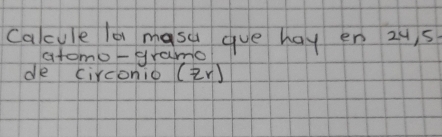 Calcule la masa que hay en 24,5-
atomo-gramo
de circonio (Zr)